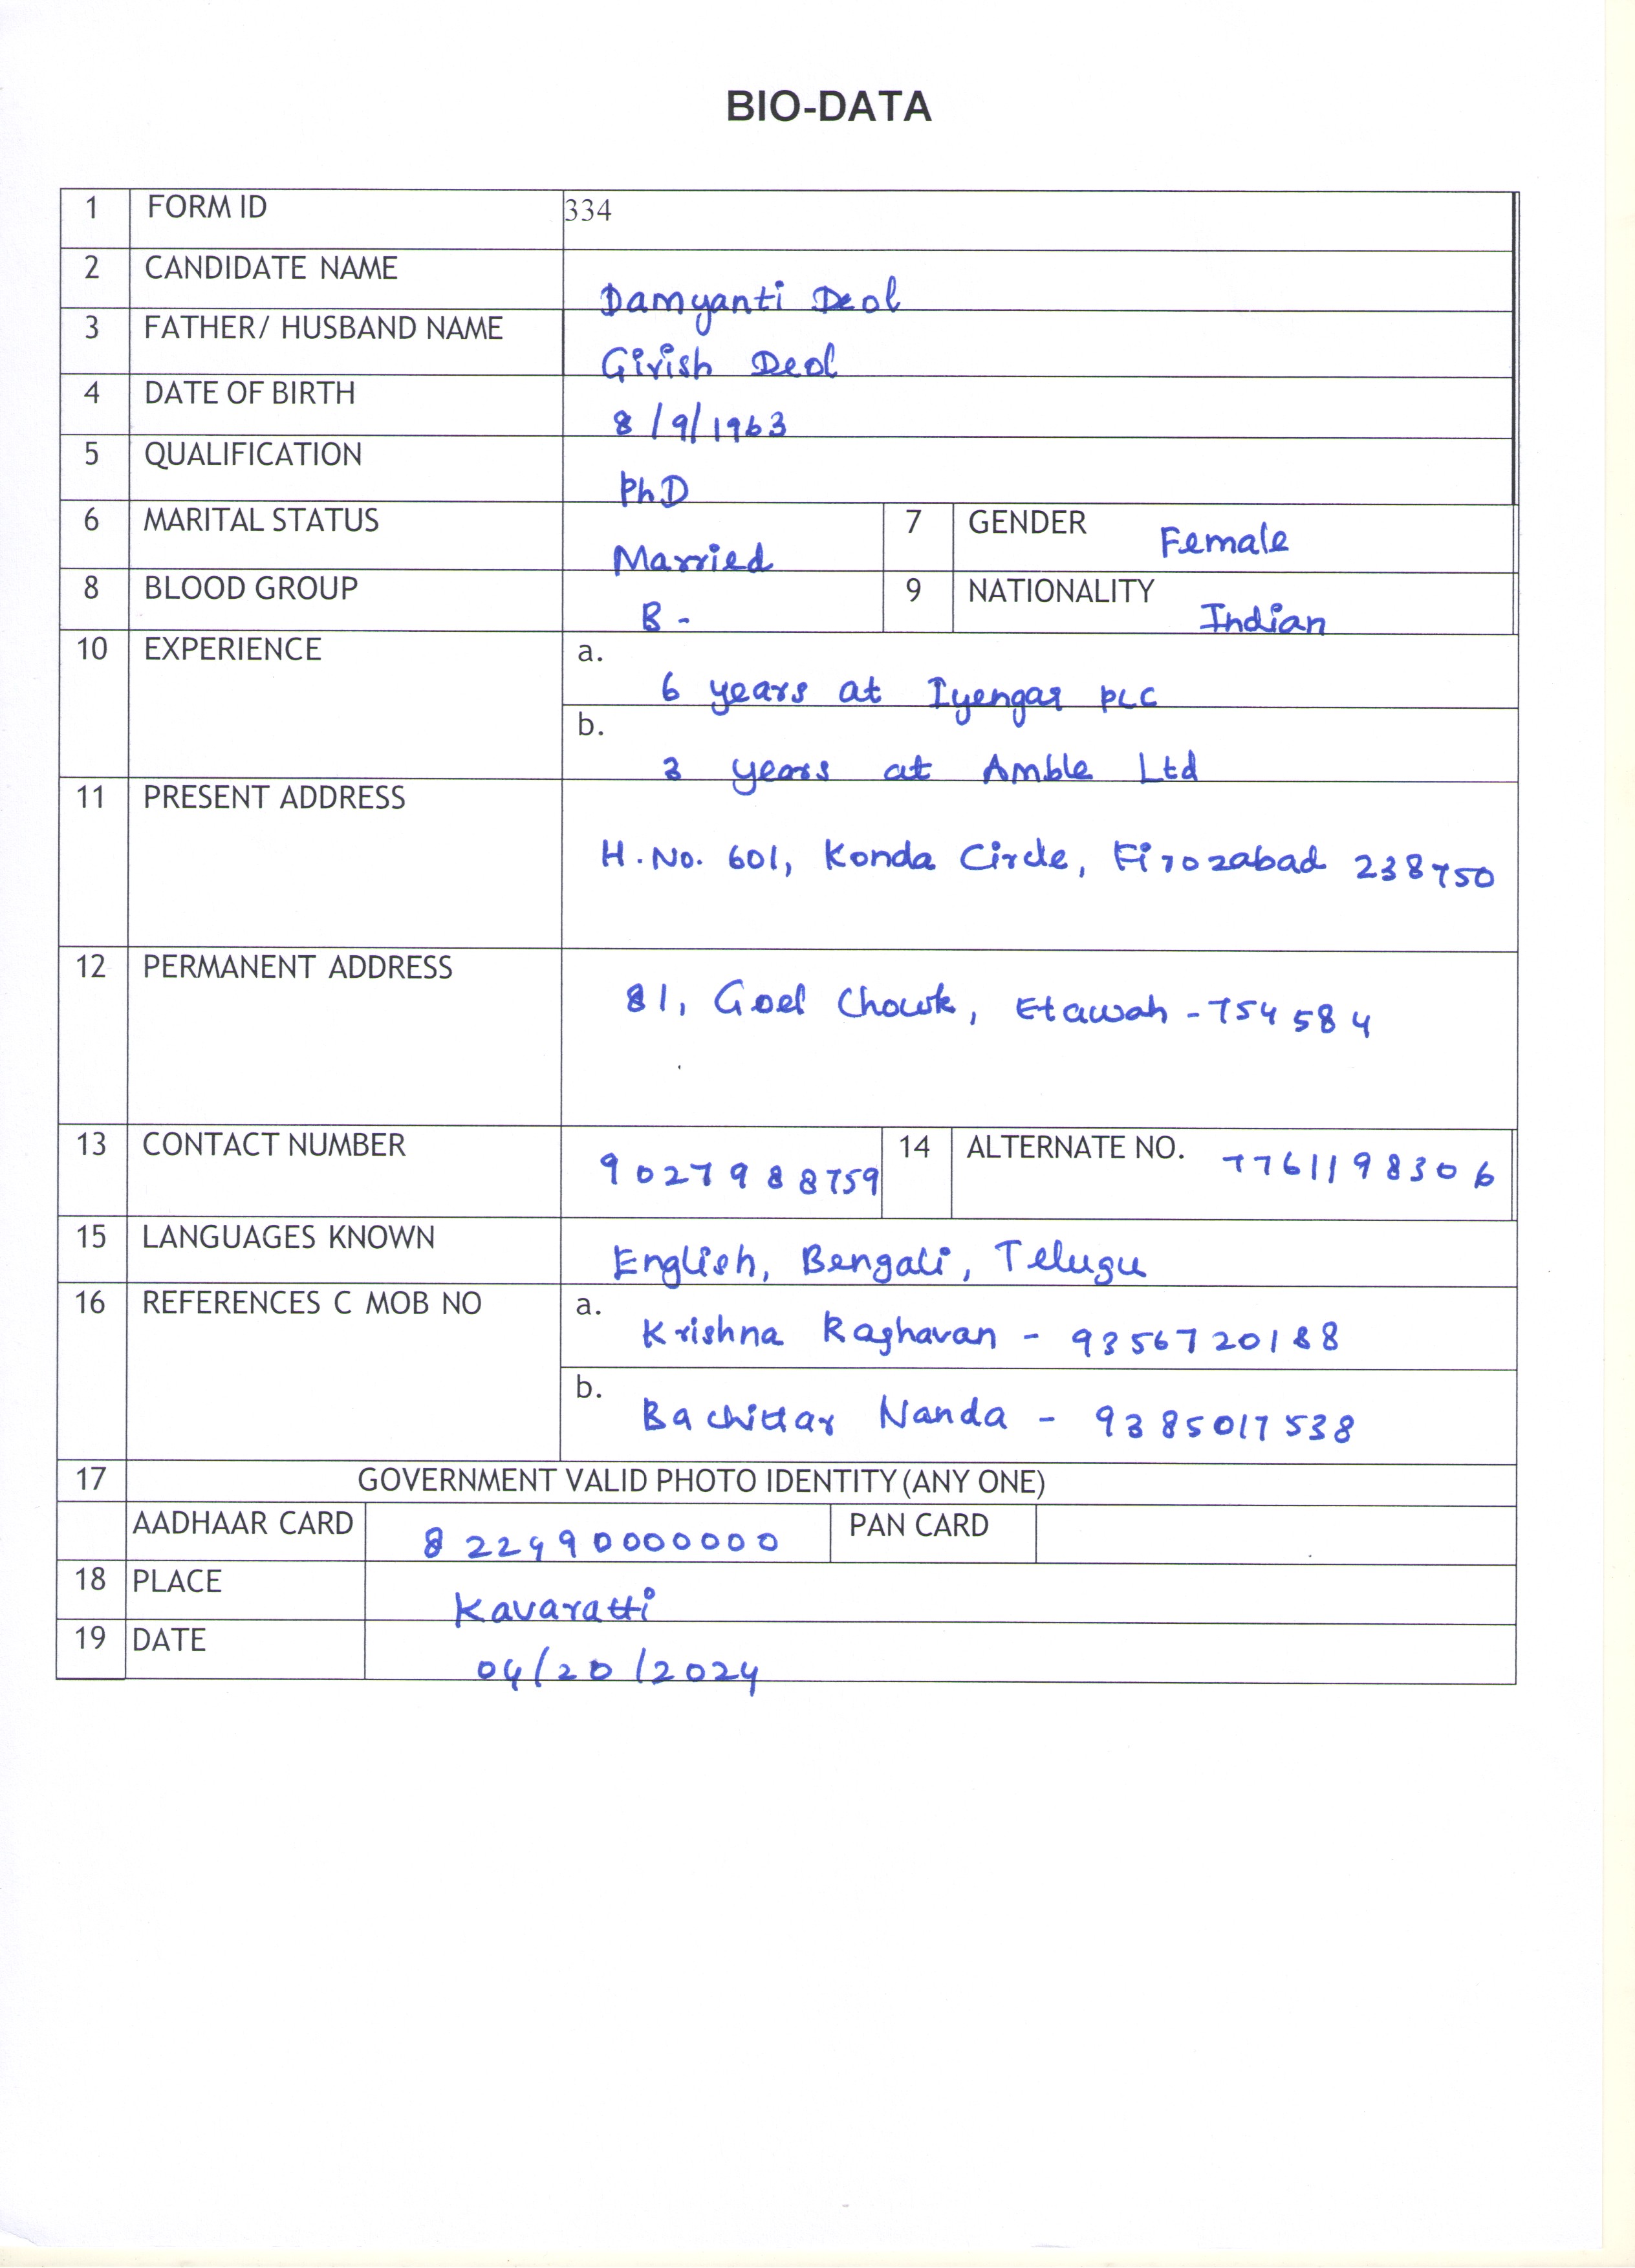 BIO-DATA
1 FORM ID 334
2 CANDIDATE NAME Damyanti Deol
3 FATHER/ HUSBAND NAME Girish Deol
4 DATE OF BIRTH 8/9/1963
5 QUALIFICATION PhD
6 MARITAL STATUS Married 7 GENDER Female
8 BLOOD GROUP B - 9 NATIONALITY Indian
10 EXPERIENCE a. 6 years at Iyengar PLC
b. 3 years at Amble Ltd
11 PRESENT ADDRESS H.No. 601, Konda Circle, Firozabad 238750
12 PERMANENT ADDRESS 81, Goel Chowk, Etawah - 754584
13 CONTACT NUMBER 9027988759 14 ALTERNATE NO. 7761198306
15 LANGUAGES KNOWN English, Bengali, Telugu
16 REFERENCES C MOB NO a. Krishna Raghavan - 9356720188
b. Bachittar Nanda - 9385017538
17 GOVERNMENT VALID PHOTO IDENTITY (ANY ONE)
AADHAAR CARD 822490000000 PAN CARD
18 PLACE Kavaratti
19 DATE 04/20/2024